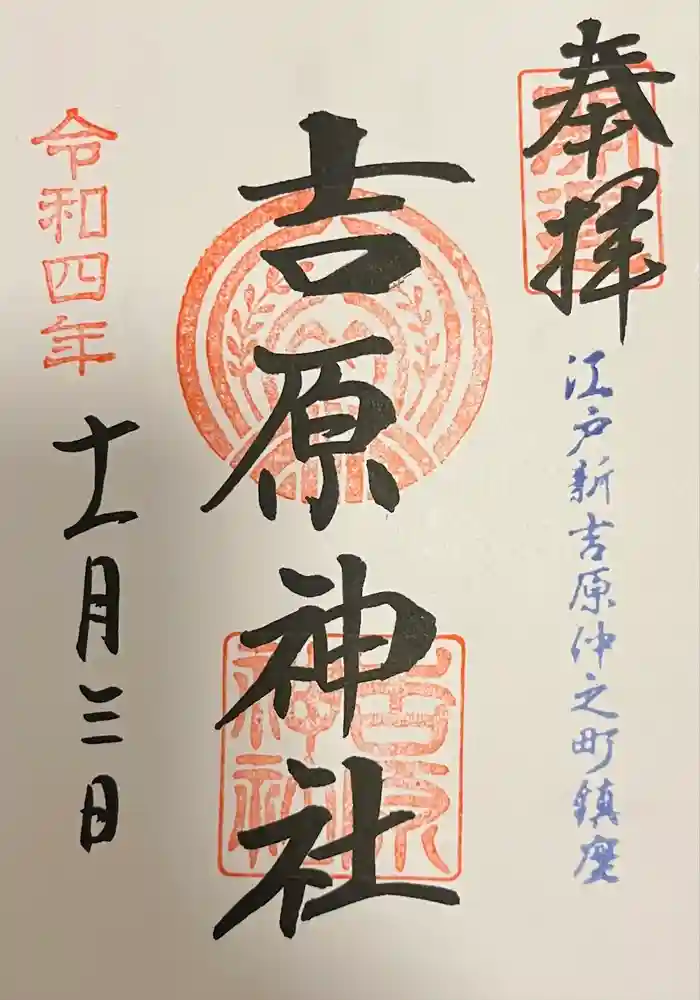 奉拝
開運
江戸新吉原仲之町鎮座
吉原神社
吉原
神社
令和四年
十一月三日